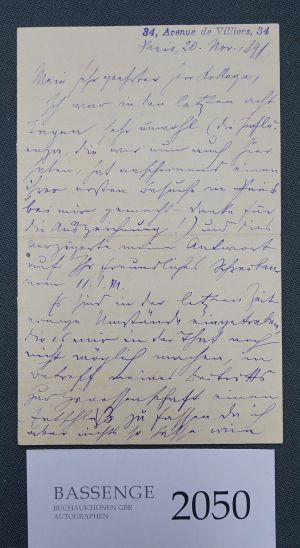 34, Avenue de Villiers, 34
Paris, 20. Nov. 1891
Mein sehr geehrter Herr Kollege,
Ich war in den letzten acht
Tagen sehr unwohl (die Influ-
enza, die wir nun auch hier
haben, hat anscheinend einen
ihrer ersten Besuche in Paris
bei mir gemacht – danke für
die Auszeichnung!) und dies
verzögerte meine Antwort
auf Ihr freundliches Schreiben
vom 11. d. M.
Es sind in der letzten Zeit
einige Umstände eingetreten,
die es mir in der That noch
nicht möglich machen, in
Betreff meines Beitritts
zur Genossenschaft einen
Entschluß zu fassen. Da ich
aber nichts so hasse wie
BASSENGE
BUCHAUKTIONEN GBR
AUTOGRAPHEN
2050